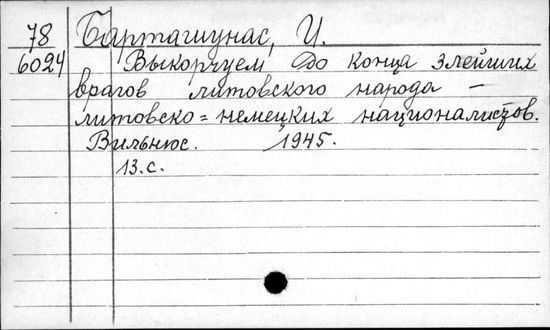 78 Барташунас, И.
6024 Выкорчуем до конца злейших
врагов литовского народа —
литовско=немецких националистов.
Вильнюс. 1945.
13.с.